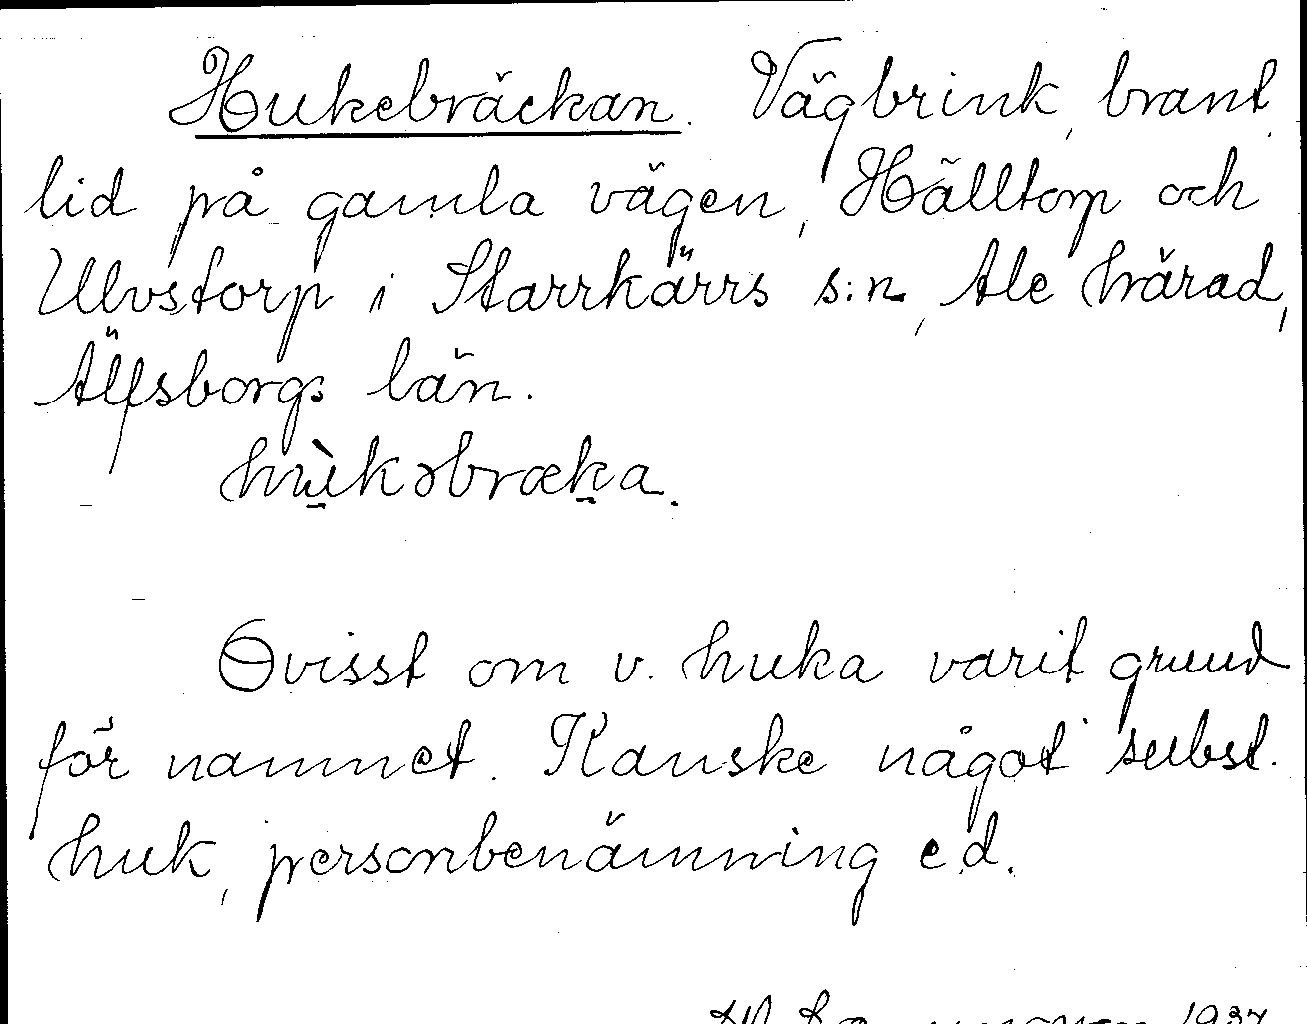 Hukebräckan. Vägbrink, brant
lid på gamla vägen, Hälltorp och
Ulvstorp i Starrkärrs s:n, Ale härad,
Älfsborgs län.
hùkəbræka.
Ovisst om v. huka varit grund
för namnet. Kanske något subst.
huk, personbenämning e.d.
1937